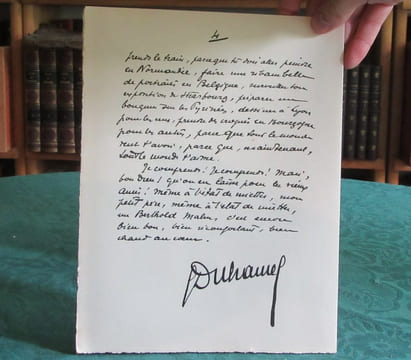 4
prends le train, parce que tu dois aller peindre
en Normandie, faire une ribambelle
de portraits en Belgique, surveiller ton
exposition de Strasbourg, préparer un
bouquin sur les Pyrénées, dessiner à Lyon
pour les uns, prendre des croquis en Bourgogne
pour les autres, parce que tout le monde
veut t'avoir, parce que, maintenant,
tout le monde t'aime.
Je comprends! Je comprends! Mais,
bon Dieu! qu'on en laisse pour les vieux
amis! même à l'état de miettes, mon
petit père, même à l'état de miettes,
un Berthold Mahn, c'est encore
bien bon, bien réconfortant, bien
chaud au cœur.
GDuhamel